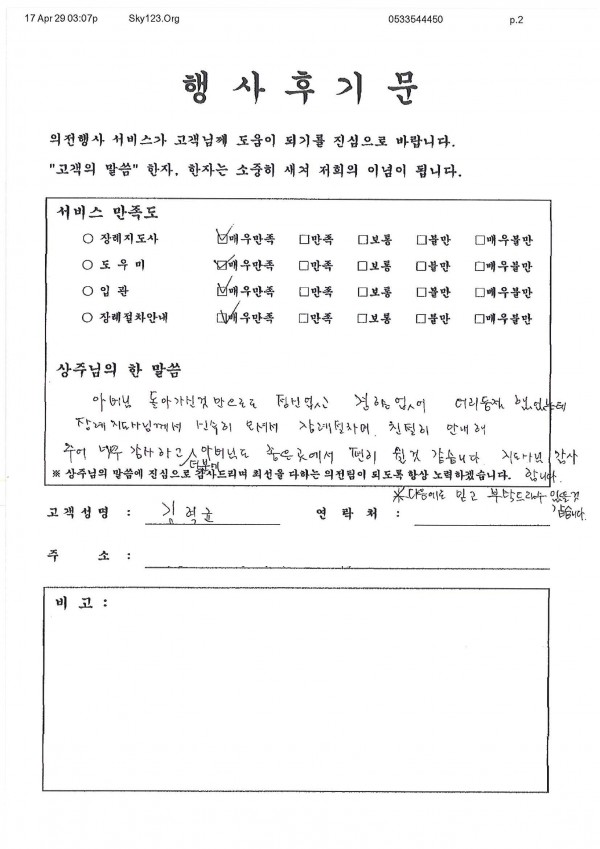 17 Apr 29 03:07p Sky123.Org 0533544450 p.2
행사후기문
의전행사 서비스가 고객님께 도움이 되기를 진심으로 바랍니다.
"고객의 말씀" 한자, 한자는 소중히 새겨 저희의 이념이 됩니다.
서비스 만족도
○ 장례지도사 ☑매우만족 □만족 □보통 □불만 □매우불만
○ 도 우 미 ☑매우만족 □만족 □보통 □불만 □매우불만
○ 입 관 ☑매우만족 □만족 □보통 □불만 □매우불만
○ 장례절차안내 ☑매우만족 □만족 □보통 □불만 □매우불만
상주님의 한 말씀
아버님 돌아가신것 만으로도 정신없신 경황 없어 어리둥절 했었는데
장례지도사님께서 신속히 오셔서 장례절차며, 친절히 안내해
주어 너무 감사하고 더불어 아버님도 좋은곳에서 편히 쉴것 같습니다 지도사님 감사
합니다.
※ 상주님의 말씀에 진심으로 감사드리며 최선을 다하는 의전팀이 되도록 항상 노력하겠습니다.
※ 다음에도 믿고 부탁드리수 있을것
같습니다.
고객성명 : 김 연 락 처 :
주 소 :
비 고 :